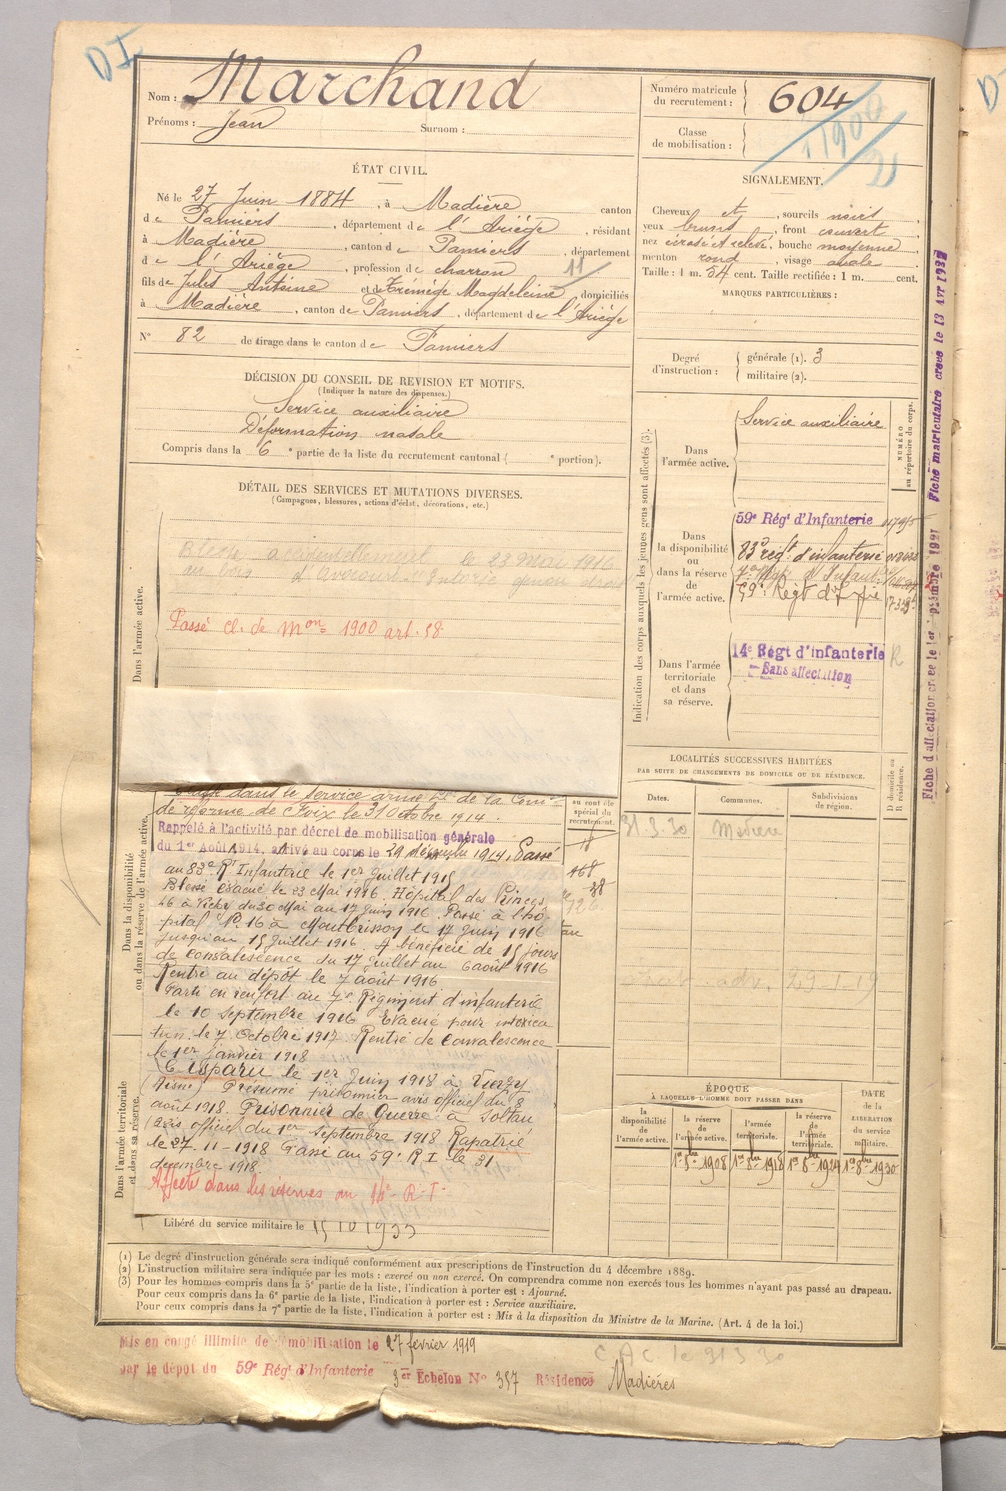 DI
Nom : Marchand
Prénoms : Jean Surnom :
Numéro matricule du recrutement : 604
Classe de mobilisation : 1900
ÉTAT CIVIL.
Né le 27 Juin 1884, à Madière canton
de Pamiers, département de l'Ariège, résidant
à Madière, canton de Pamiers, département
de l'Ariège, profession de charron 11
fils de Jules Antoine et de Trémège Magdeleine, domiciliés
à Madière, canton de Pamiers, département de l'Ariège
N° 82 de tirage dans le canton de Pamiers
SIGNALEMENT.
Cheveux et, sourcils noirs
yeux bruns, front couvert
nez écrasé et relevé, bouche moyenne
menton rond, visage ovale
Taille : 1 m. 54 cent. Taille rectifiée : 1 m. cent.
MARQUES PARTICULIÈRES :
Degré d'instruction : générale (1). 3
militaire (2).
DÉCISION DU CONSEIL DE REVISION ET MOTIFS.
(Indiquer la nature des dispenses.)
Service auxiliaire
Déformation nasale
Compris dans la 6e partie de la liste du recrutement cantonal ( e portion).
DÉTAIL DES SERVICES ET MUTATIONS DIVERSES.
(Campagnes, blessures, actions d'éclat, décorations, etc.)
Dans l'armée active.
Blessé accidentellement le 23 mai 1916
au bois d'Avocourt
Passé cl. de Mon 1900 art. 58
Indication des corps auxquels les jeunes gens sont affectés (3).
NUMÉRO au répertoire du corps.
Dans l'armée active.
Service auxiliaire
Dans la disponibilité ou dans la réserve de l'armée active.
59e Régt d'Infanterie
83e régt d'infanterie
59e Régt d'Infie
Dans l'armée territoriale et dans sa réserve.
14e Régt d'infanterie
Sans affectation
Fiche d'affectation créée le 1er Septembre 1921 Fiche matriculaire créée le 13 Avr 1932
Dans la disponibilité ou dans la réserve de l'armée active.
Classé dans le service armé
de réforme de Foix le 31 Octobre 1914.
Rappelé à l'activité par décret de mobilisation générale
du 1er Août 1914, arrivé au corps le 29 décembre 1914. Passé
au 83e Rt Infanterie le 1er Juillet 1915
Blessé évacué le 23 Mai 1916. Hôpital des Princes
46 à Vichy du 30 Mai au 17 Juin 1916. Passé à l'hô-
pital N° 16 à Montbrison le 17 Juin 1916 au
jusqu'au 15 Juillet 1916. A bénéficié de 15 jours
de convalescence du 17 Juillet au 6 août 1916
Rentré au dépôt le 7 août 1916.
Parti en renfort au 7e Régiment d'infanterie
le 10 Septembre 1916 Evacué pour intoxica
tion le 7 Octobre 1917 Rentré de Convalescence
le 1er janvier 1918
Dans l'armée territoriale et dans sa réserve.
Disparu le 1er Juin 1918 à Vierzy
(Aisne) Présumé prisonnier avis officiel du 8
août 1918. Prisonnier de Guerre à Soltau
(avis officiel du 1er Septembre 1918 Rapatrié
le 27-11-1918 Passé au 59e R I le 31
décembre 1918
Affecté dans les réserves au 14e R.I.
Libéré du service militaire le 15 10 1933
LOCALITÉS SUCCESSIVES HABITÉES
PAR SUITE DE CHANGEMENTS DE DOMICILE OU DE RÉSIDENCE.
Dates. Communes. Subdivisions de région. D domicile ou R résidence.
31.3.30 Madière
ÉPOQUE
À LAQUELLE L'HOMME DOIT PASSER DANS
la disponibilité de l'armée active. la réserve de l'armée active. l'armée territoriale. la réserve de l'armée territoriale. DATE de la LIBÉRATION du service militaire.
1er 8bre 1908 1er 8bre 1918 1er 8bre 1924 1er 8bre 1930
(1) Le degré d'instruction générale sera indiqué conformément aux prescriptions de l'instruction du 4 décembre 1889.
(2) L'instruction militaire sera indiquée par les mots : exercé ou non exercé. On comprendra comme non exercés tous les hommes n'ayant pas passé au drapeau.
(3) Pour les hommes compris dans la 5e partie de la liste, l'indication à porter est : Ajourné.
Pour ceux compris dans la 6e partie de la liste, l'indication à porter est : Service auxiliaire.
Pour ceux compris dans la 7e partie de la liste, l'indication à porter est : Mis à la disposition du Ministre de la Marine. (Art. 4 de la loi.)
Mis en congé illimité de démobilisation le 27 février 1919
par le dépôt du 59e Régt d'Infanterie 3er Echelon No 357 Résidence Madières
C.A.C. le 31 3 30